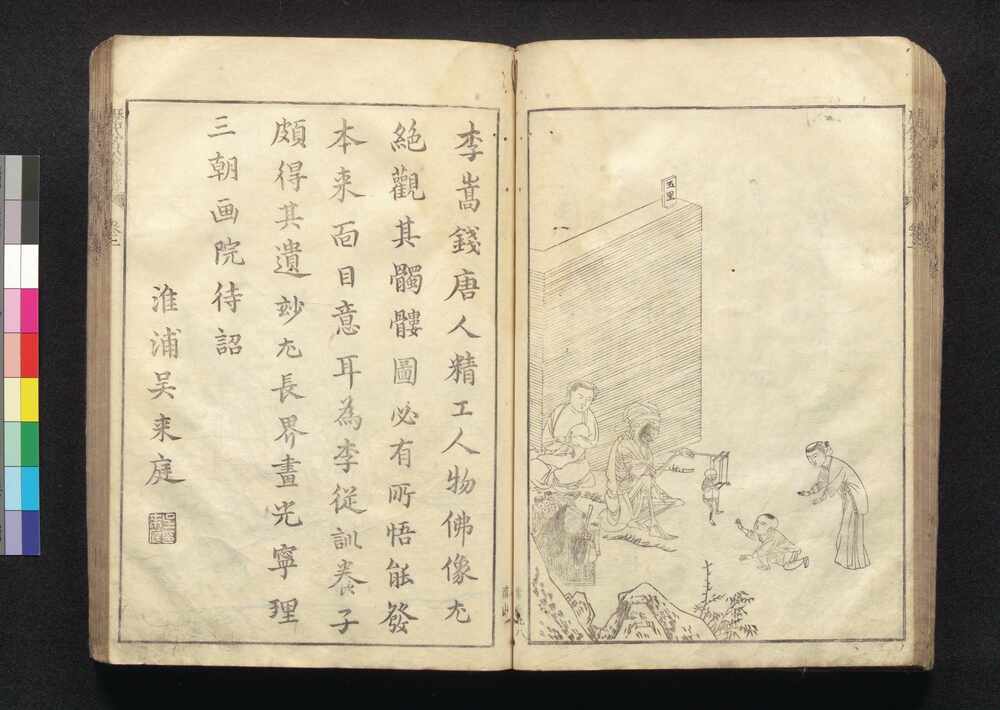 五里
李嵩錢唐人精工人物佛像尤
絶觀其髑髏圖必有所悟能發
本来面目意耳為李從訓養子
頗得其遺玅尤長界畫光寧理
三朝画院待詔
淮浦吴来庭